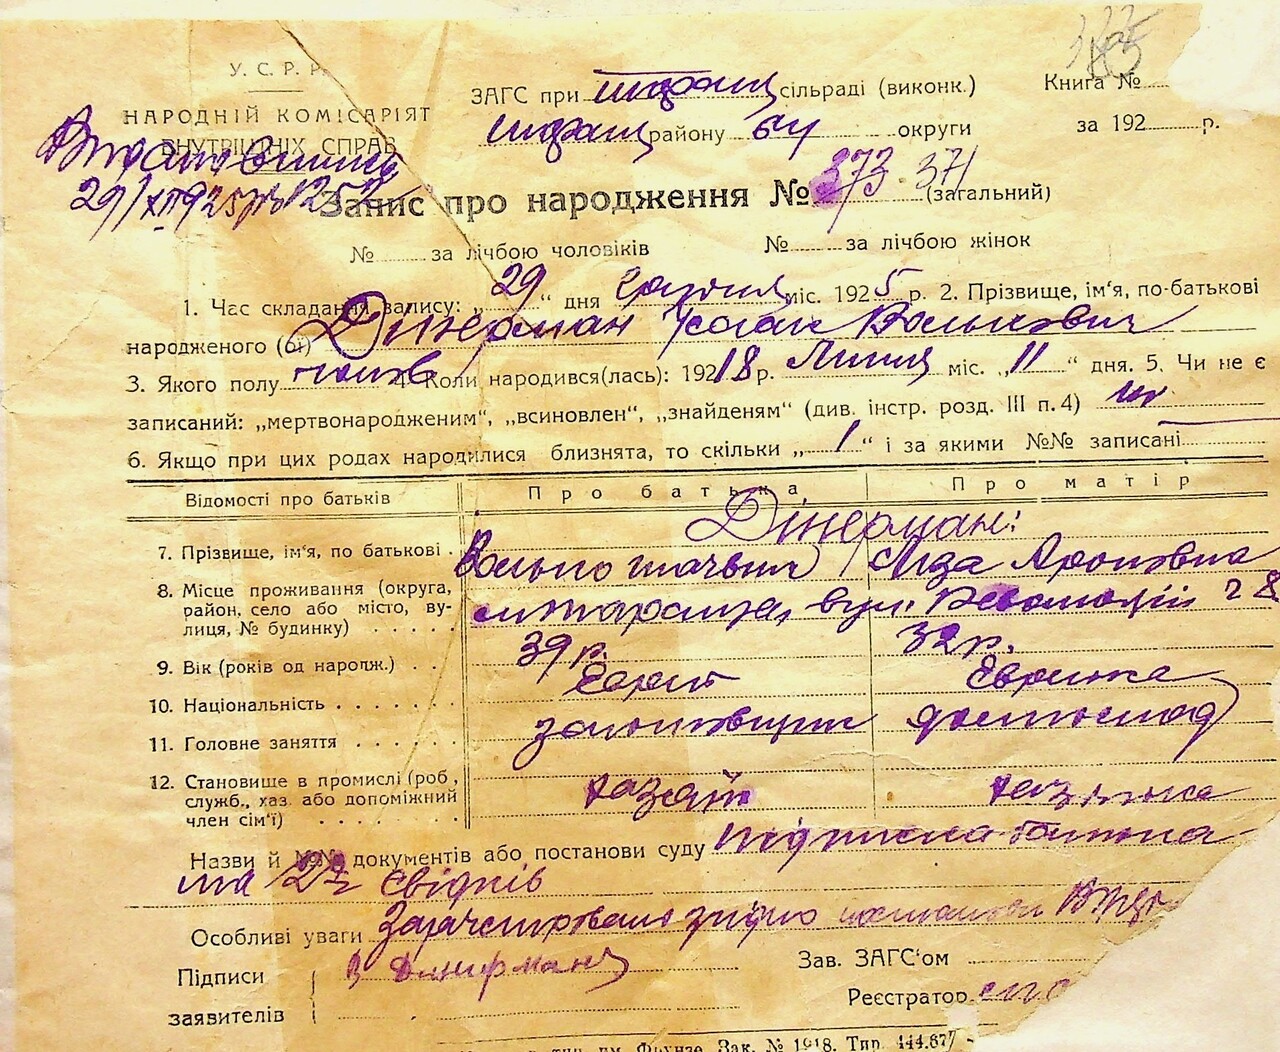 У. С. Р. Р.
НАРОДНІЙ КОМІСАРІЯТ
ВНУТРІШНІХ СПРАВ
ЗАГС при сільраді (виконк.)
Книга №
району округи
за 192 р.
29/XII 925 р. № 1252
Запис про народження № 373 371 (загальний)
№ за лічбою чоловіків № за лічбою жінок
1. Час складання запису: „29“ дня грудня міс. 1925 р. 2. Прізвище, ім'я, по-батькові
народженого (ої) Дінерман Волькович
3. Якого полу чолов 4. Коли народився(лась): 1918 р. Липня міс. „11“ дня. 5. Чи не є
записаний: „мертвонародженим“, „всиновлен“, „знайденям“ (див. інстр. розд. III п. 4) ні
6. Якщо при цих родах народилися близнята, то скільки „1“ і за якими №№ записані
Відомості про батьків Про батька Про матір
Дінерман:
7. Прізвище, ім'я, по батькові Волько Лиза Ароновна
8. Місце проживання (округа, район, село або місто, вулиця, № будинку) вул. Революції
9. Вік (років од народж.) 39 р. 32 р.
10. Національність Єврей Єврейка
11. Головне заняття
12. Становище в промислі (роб., служб., хаз. або допоміжний член сім'ї) хазяїн хазяйка
Назви й №№ документів або постанови суду підписка батька
та 2х свідків
Особливі уваги Зареєстровано згідно постанови
Підписи
заявителів
Зав. ЗАГС'ом
Реєстратор
тип. ім. Фрунзе Зак. № 1918. Тир. 444.677